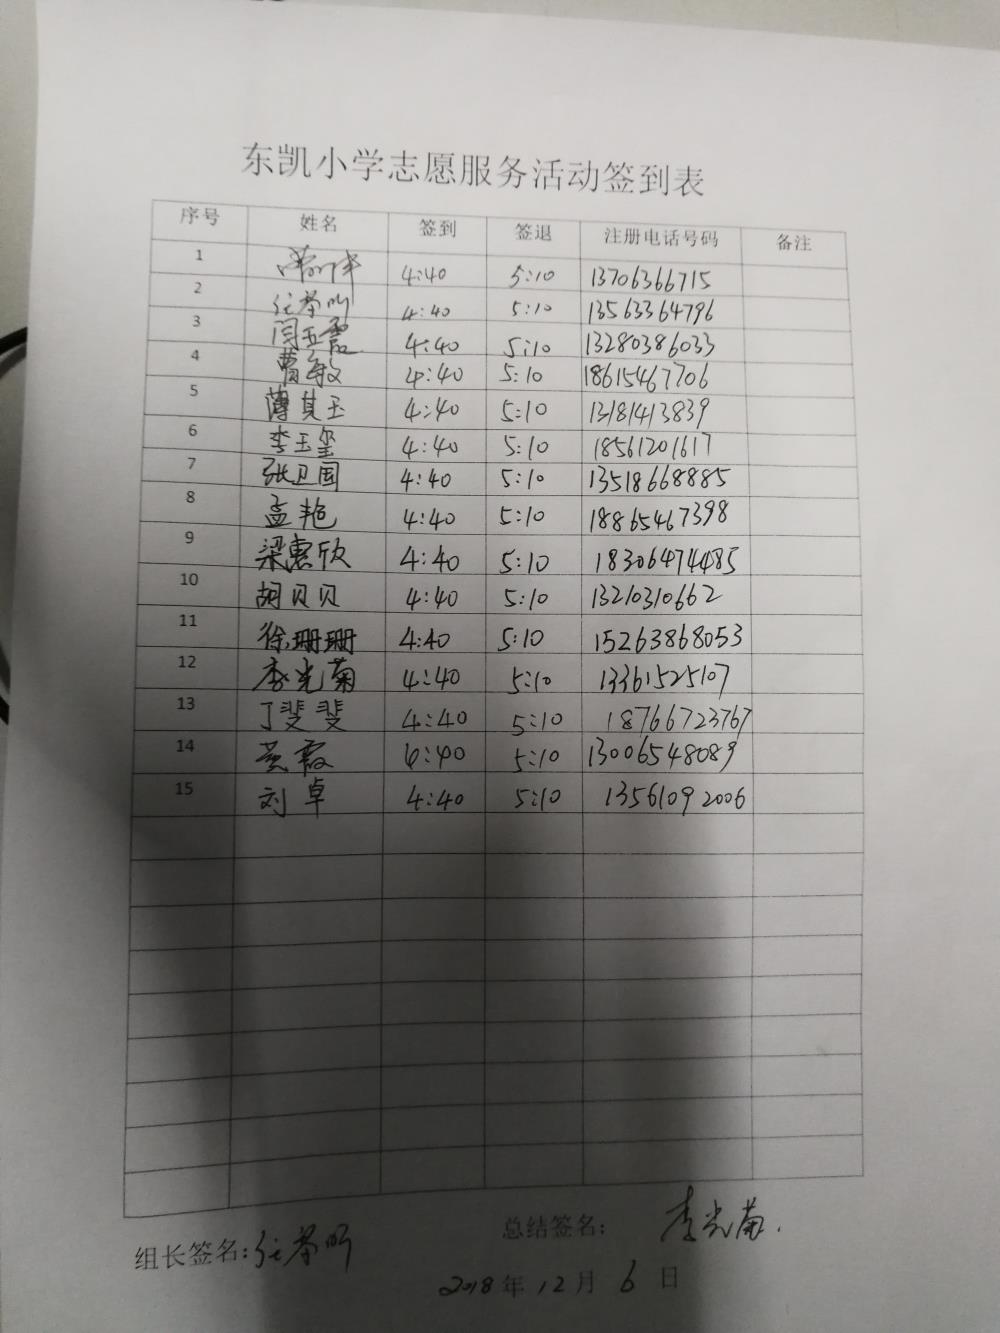 东凯小学志愿服务活动签到表
序号 姓名 签到 签退 注册电话号码 备注
1 4:40 5:10 13706366715
2 4:40 5:10 13563364796
3 闫玉霞 4:40 5:10 13280386033
4 曹敏 4:40 5:10 18615467706
5 薄其玉 4:40 5:10 13181413839
6 李玉玺 4:40 5:10 18561201617
7 张卫国 4:40 5:10 13518668885
8 孟艳 4:40 5:10 18865467398
9 梁惠欣 4:40 5:10 18306474485
10 胡贝贝 4:40 5:10 13210310662
11 徐珊珊 4:40 5:10 15263868053
12 李光菊 4:40 5:10 13361525107
13 丁斐斐 4:40 5:10 18766723767
14 黄霞 4:40 5:10 13006548089
15 刘卓 4:40 5:10 13561092006
总结签名: 李光菊.
组长签名:
2018年12月6日